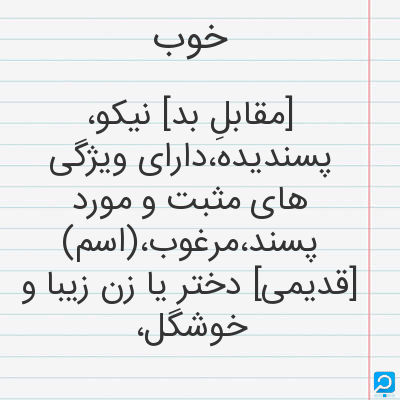 خوب
[مقابلِ بد] نیکو،
پسندیده،دارای ویژگی
های مثبت و مورد
پسند،مرغوب،(اسم)
[قدیمی] دختر یا زن زیبا و
خوشگل،